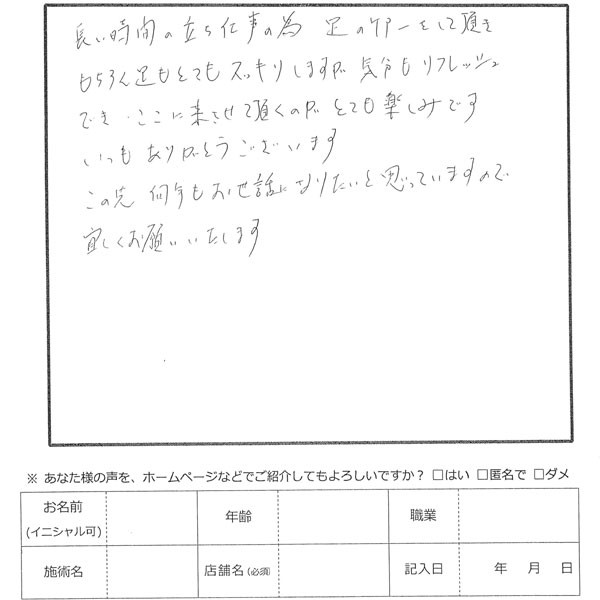 長い時間の立ち仕事の為 足のケアーをして頂き
もちろん足もとてもスッキリしますが 気分もリフレッシュ
でき、ここに来させて頂くのが とても楽しみです
いつも ありがとうございます
この先 何年もお世話になりたいと思っていますので
宜しくお願いいたします
※ あなた様の声を、ホームページなどでご紹介してもよろしいですか？ □はい □匿名で □ダメ
お名前 年齢 職業
(イニシャル可)
施術名 店舗名(必須) 記入日 年 月 日